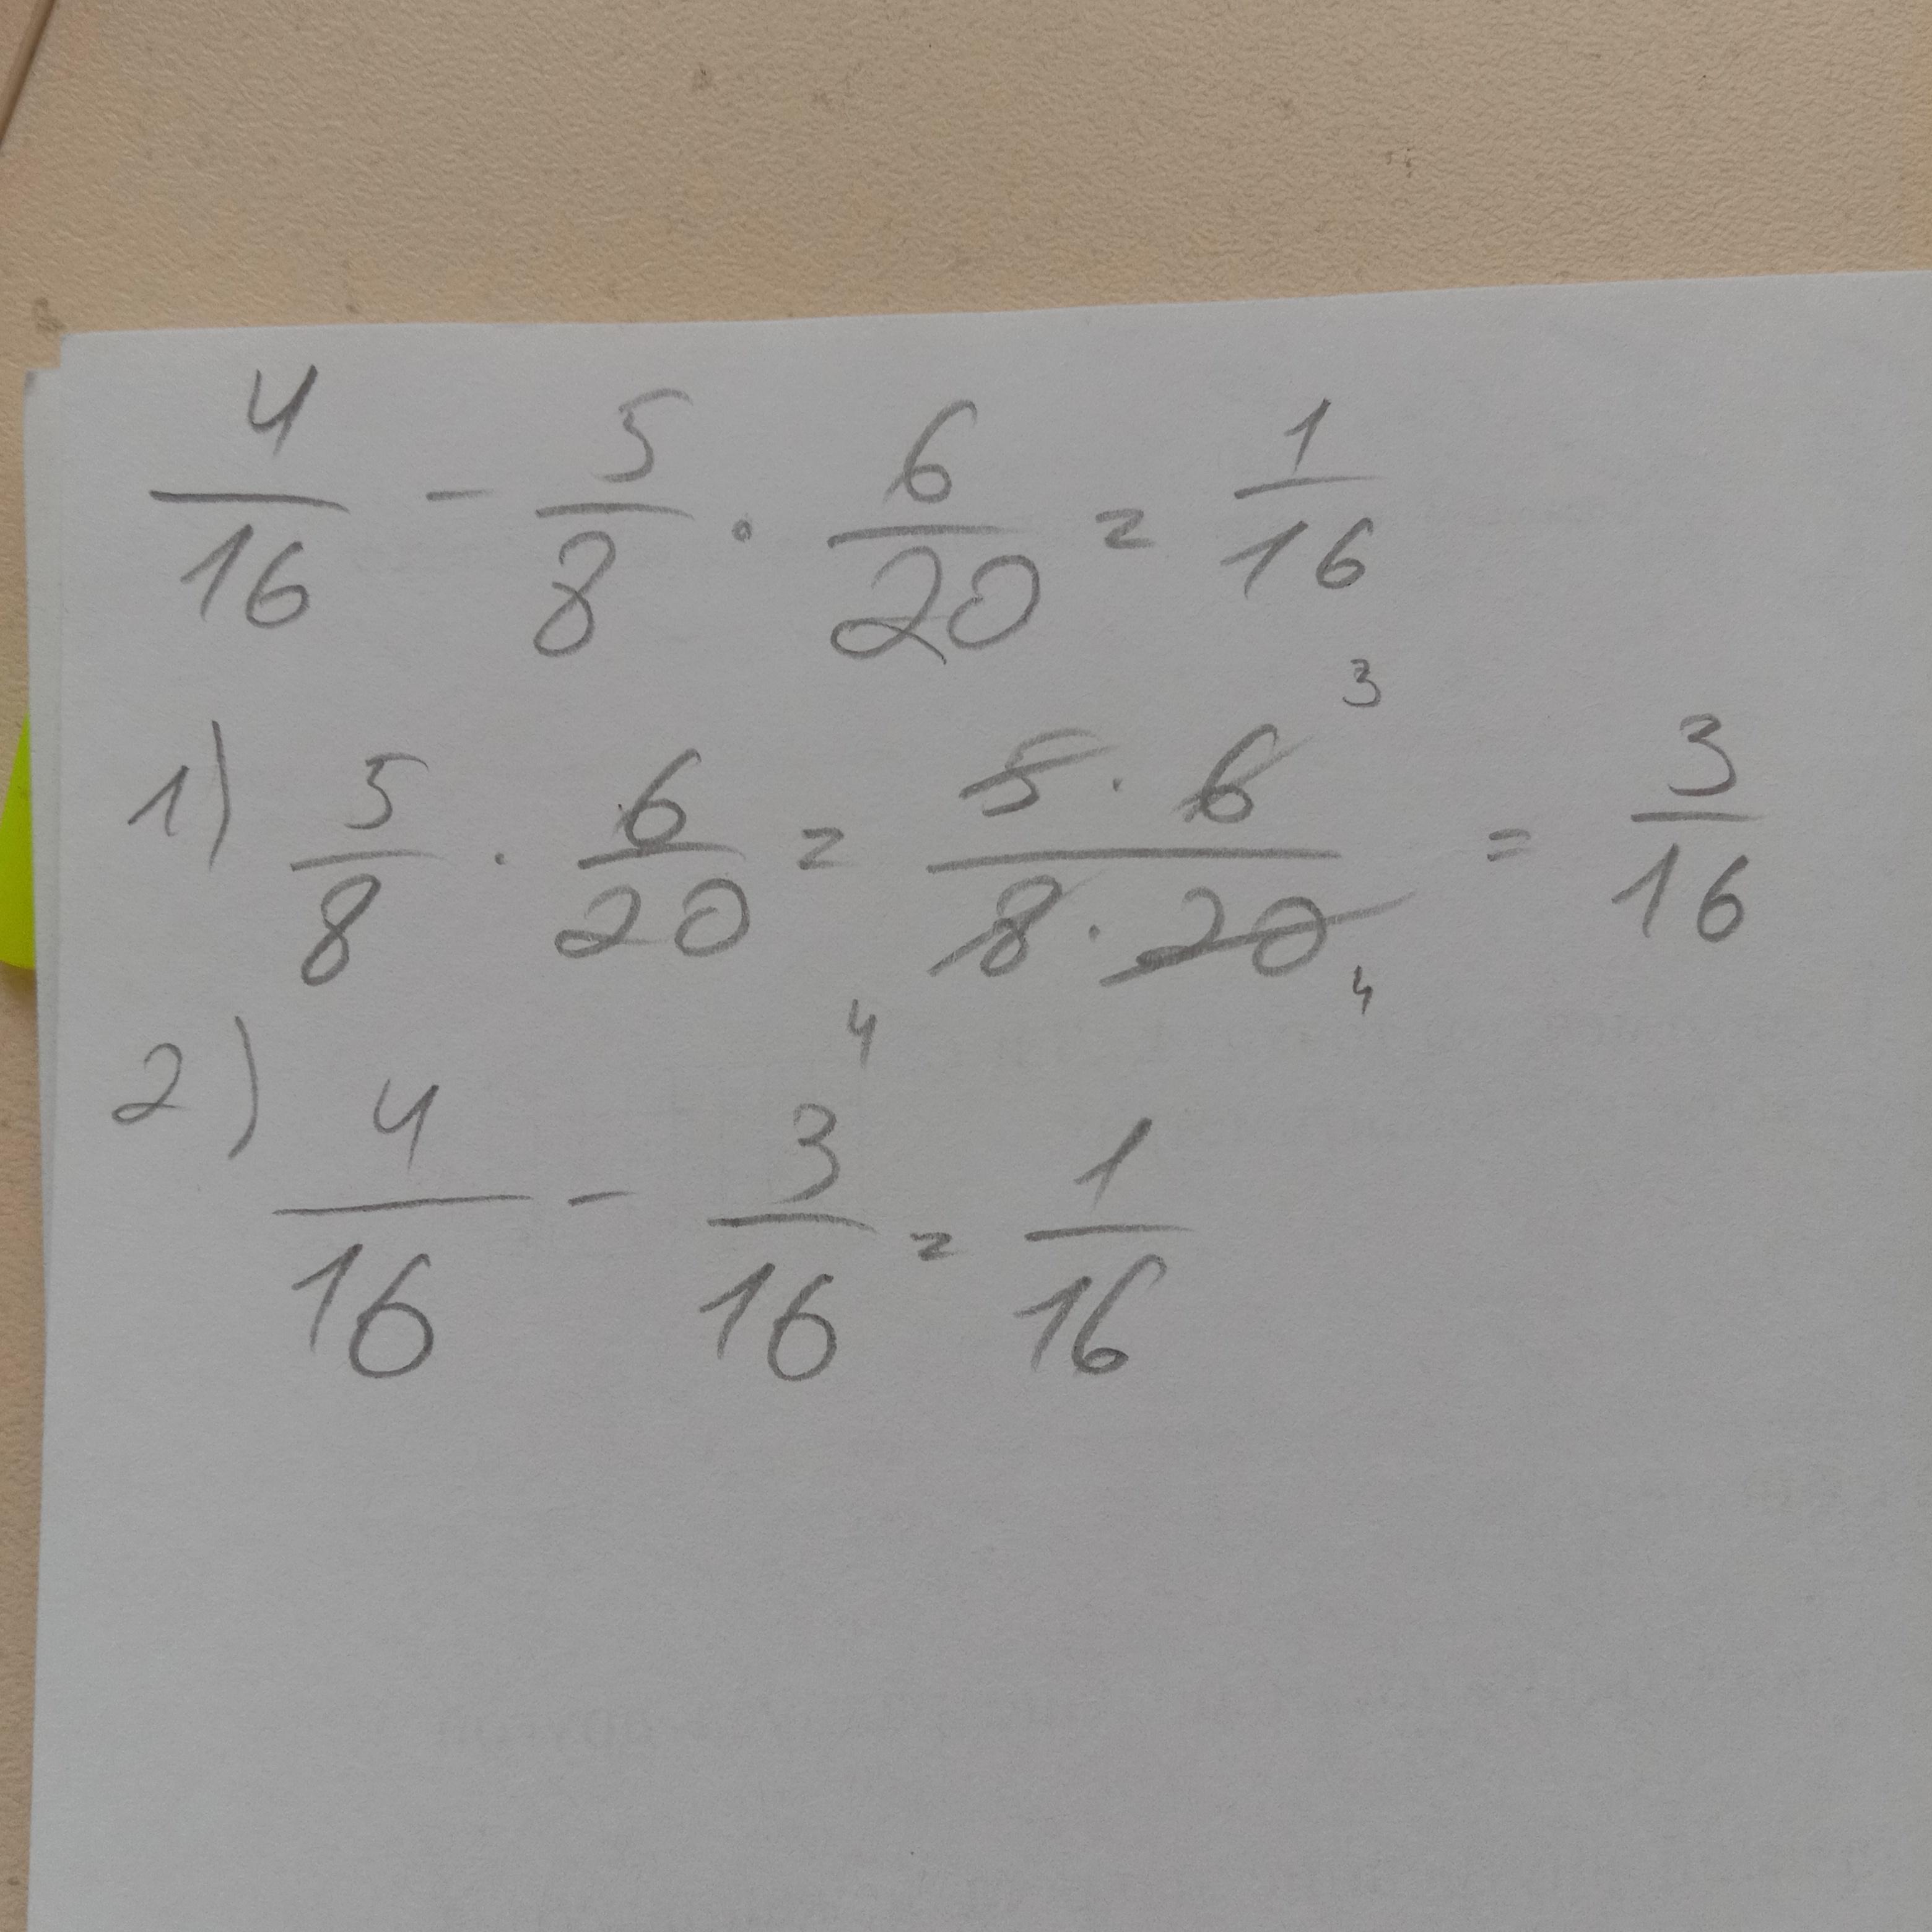 4/16 - 5/8 · 6/20 = 1/16
1) 5/8 · 6/20 = 5 · 6 3 / 8 4 · 20 4 = 3/16
2) 4/16 - 3/16 = 1/16